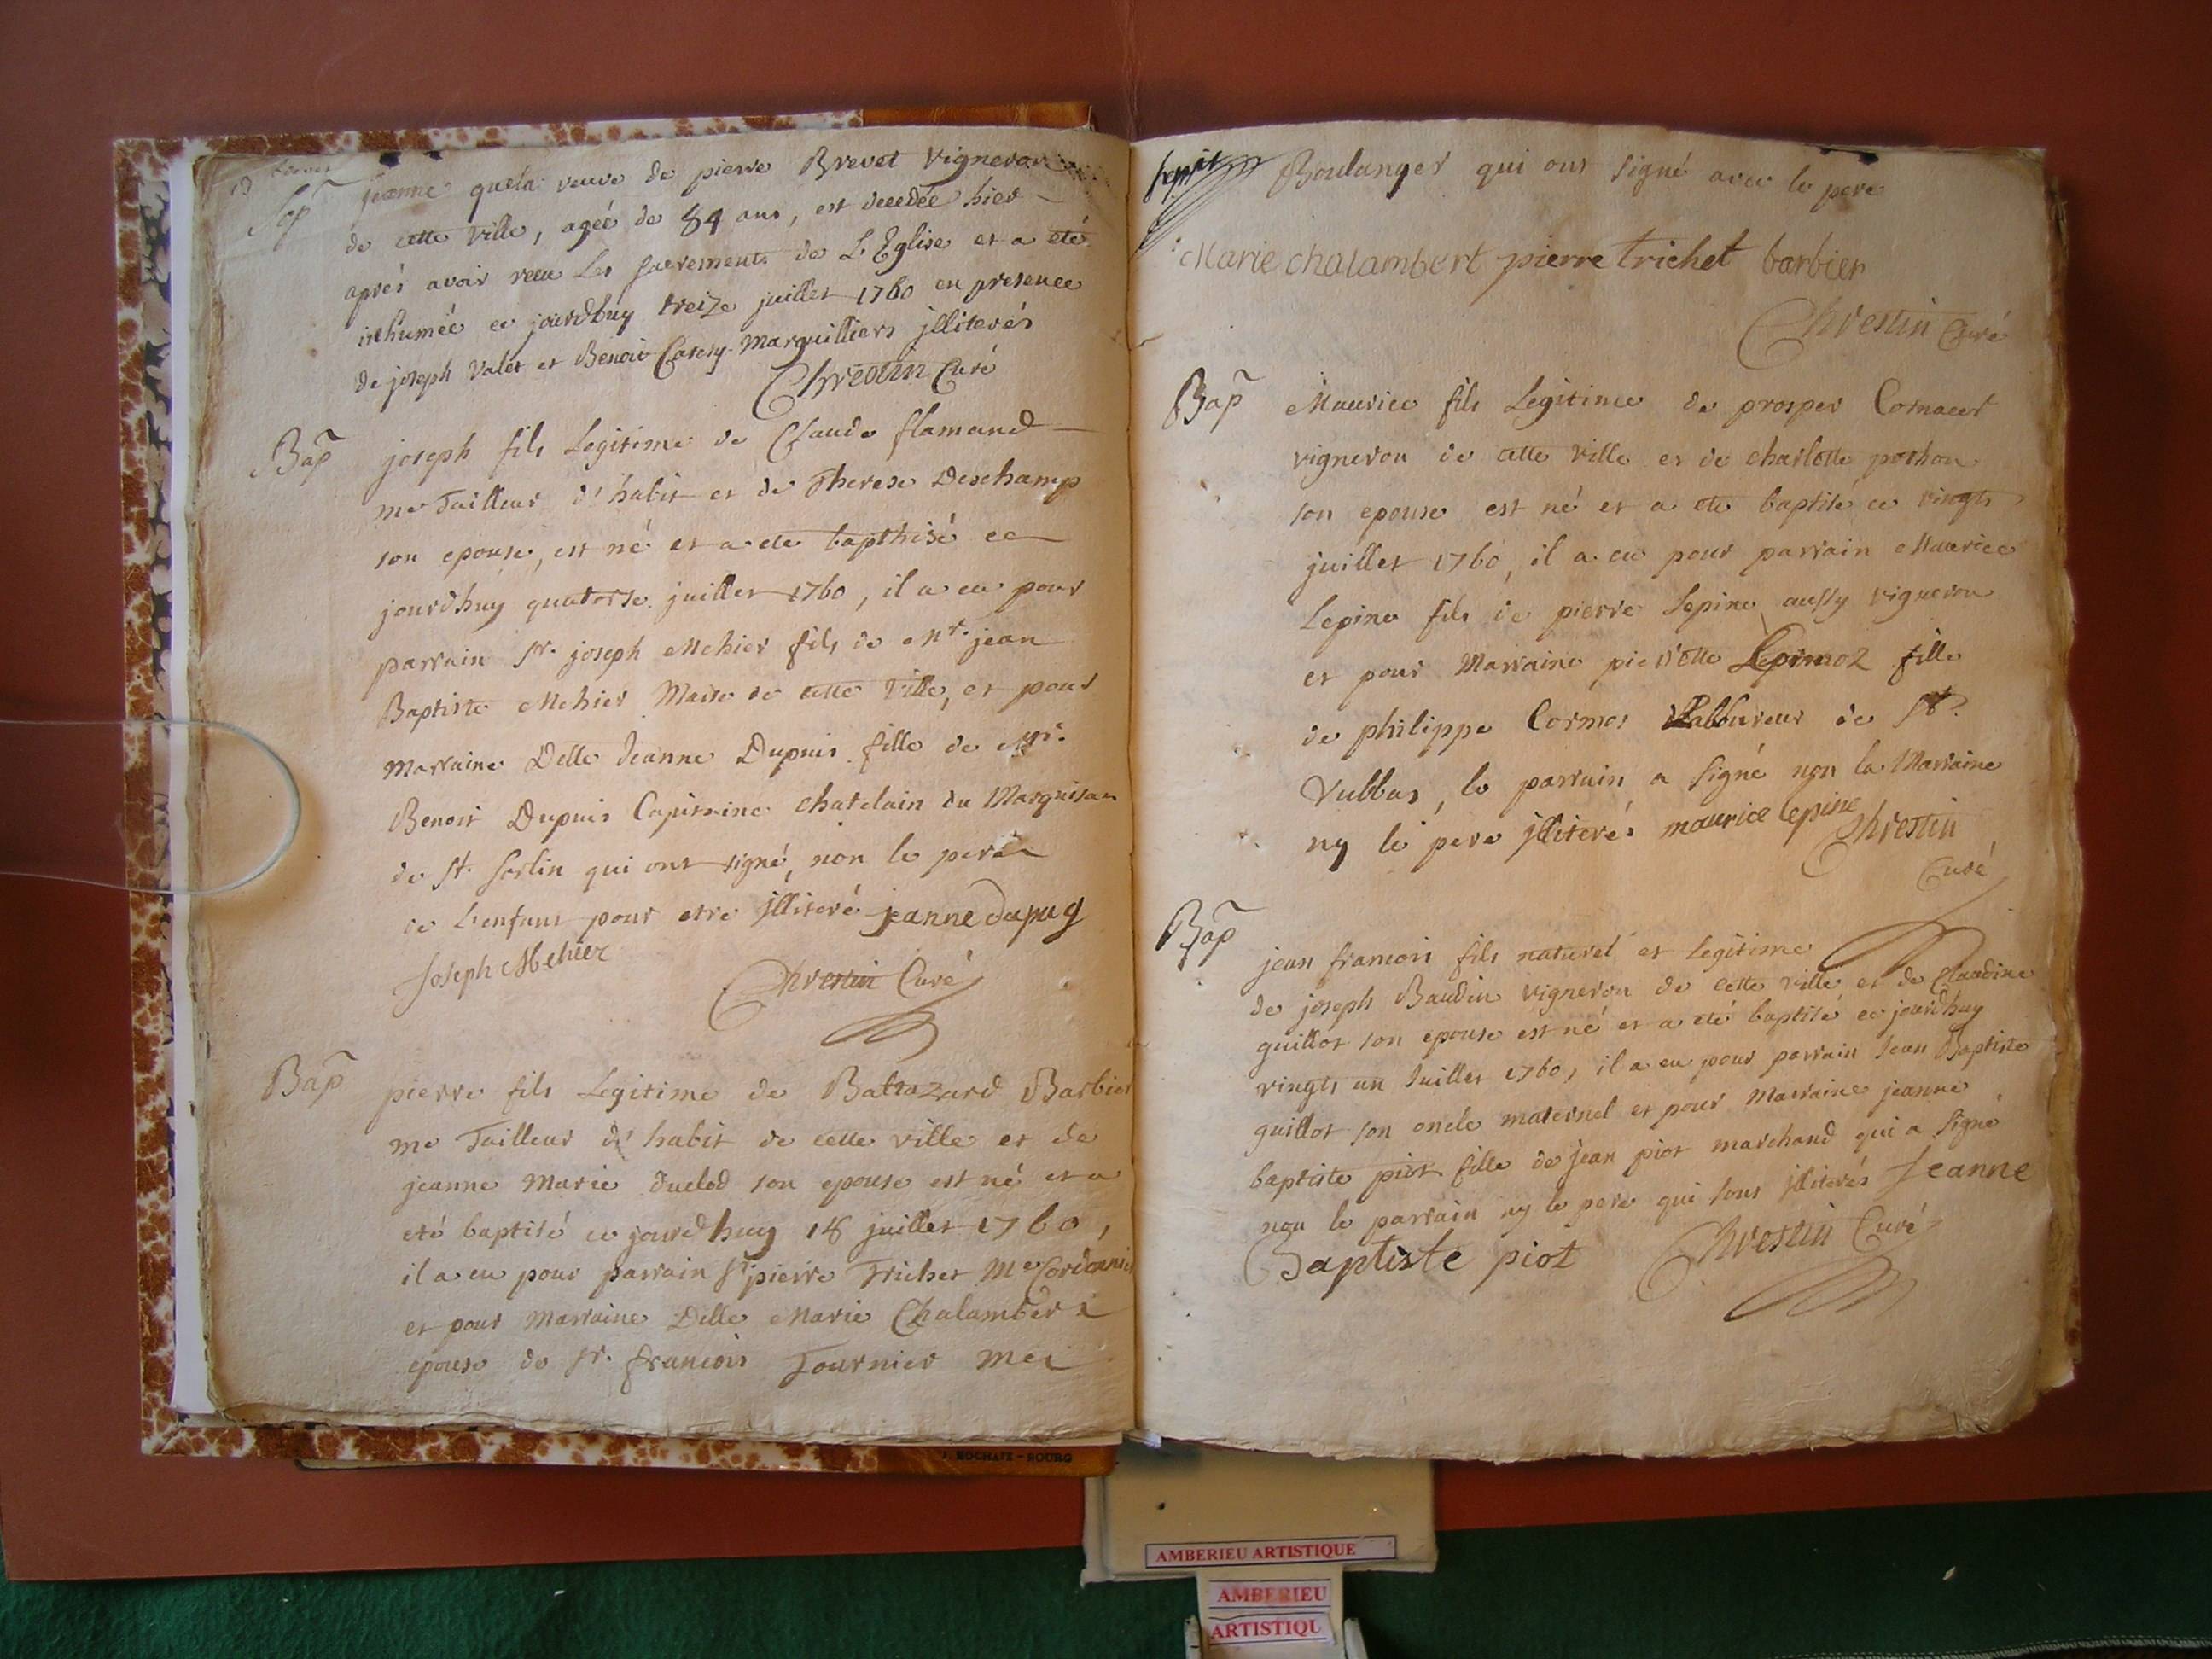 Sep
jeanne quela veuve de pierre Brevet vigneron
de cette ville, ageé de 84 ans, est decedée hier
aprés avoir receu Les sacrements de L'Eglise et a eté
inhumeé ce jourdhuy treize juillet 1760 en presence
de joseph Valet et Benoit Marguilliers jlliterés
Chrestin Curé
Bap
joseph fils Legitime de Claude flamand
me Tailleur d'habit et de Therese Deschamp
son epouse, est né et a eté bapthisé ce
jourdhuy quatorse juillet 1760, il a eu pour
parrain sr. joseph Mehier fils de Mr. jean
Baptiste Mehier Maire de cette Ville, et pour
Marraine Delle Jeanne Dupuis fille de Mr.
Benoit Dupuis Capitaine chatelain du Marquisat
de St. Sorlin qui ont signé, non le pere
de L'enfant pour etre jlliteré jeanne dupuy
Joseph Mehier
Chrestin Curé
Bap
pierre fils Legitime de Baltazard Barbier
me Tailleur d'habit de cette ville et de
jeanne Marie duclod son epouse est né et a
eté baptisé ce jourdhuy 18 juillet 1760,
il a eu pour parrain Sr pierre Trichet Me Cordonnier
et pour Marraine Delle Marie Chalambert
epouse de sr. francois Tournier Me
Boulanger qui ont signé avec le pere
Marie chalambert pierre trichet barbier
Chrestin Curé
Bap
Maurice fils Legitime de prosper
vigneron de cette ville et de charlotte pothon
son epouse est né et a eté baptisé ce vingts
juillet 1760, il a eu pour parrain Maurice
Lepine fils de pierre Lepine aussy vigneron
et pour Marraine pierrette fille
de philippe Cormos Laboureur de St.
Vulbas, le parrain a signé non la Marraine
ny le pere jlliterés maurice lepine
Chrestin
Curé
Bap
jean francois fils naturel et Legitime
de joseph Baudin vigneron de cette ville et de Claudine
guillot son epouse est né et a eté baptisé ce jourdhuy
vingts un Juillet 1760, il a eu pour parrain Jean Baptiste
guillot son oncle maternel et pour Marraine jeanne
baptiste piot fille de jean piot marchand qui a signé
non le parrain ny le pere qui sont jlliterés Jeanne
Baptiste piot Chrestin Curé
J. ROCHAIX - BOURG
AMBERIEU ARTISTIQUE
AMBERIEU
ARTISTIQU